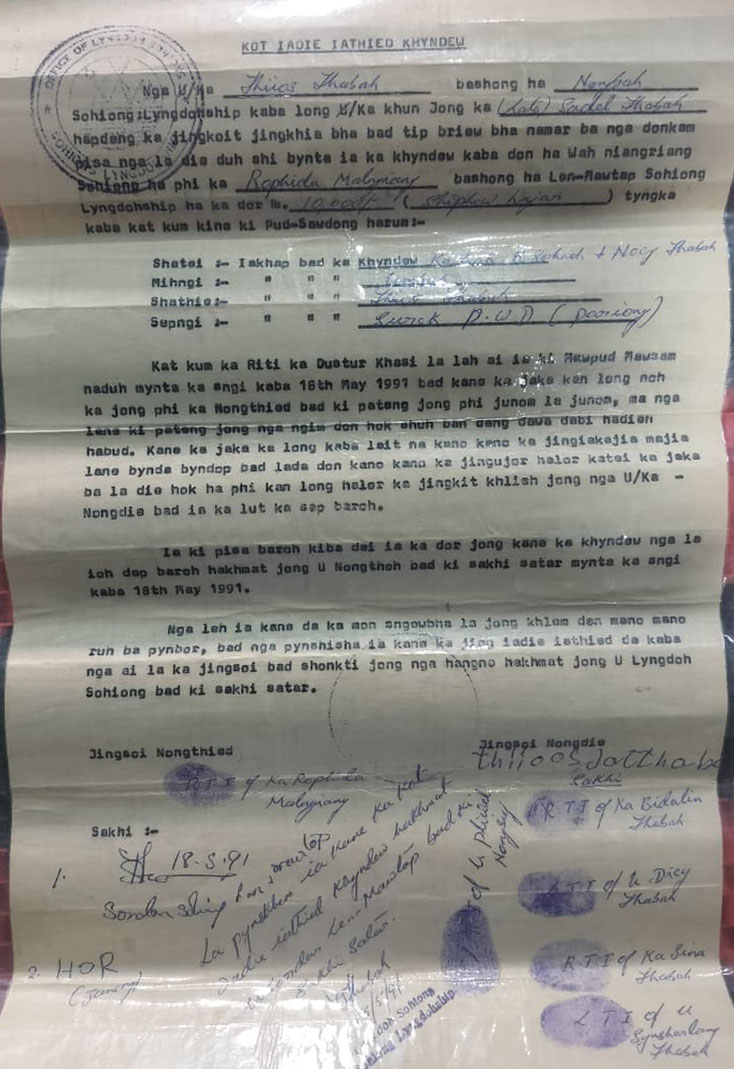 OFFICE OF LYNGDOH SOHIONG
SOHIONG LYNGDOHSHIP
KOT IADIE IATHIED KHYNDEW
Nga U/Ka Thiios Thabah bashong ha Nonbah
Sohiong:Lyngdohship kaba long U/Ka khun Jong ka (Late) Sadel Thabah
hapdang ka jingkoit jingkhia bha bad tip briew bha namar ba nga donkam
pisa nga la die duh shi bynta ia ka khyndew kaba don ha Wah niangriang
Sohiong ha phi ka Rophida Malngiang bashong ha Len-Mawtap Sohiong
Lyngdohship ha ka dor Rs. 10,000/- (Shiphew hajar) tyngka
kaba kat kum kine ki Pud-Sawdong harum:-
Shatei :- Iakhap bad ka Khyndew & Nocy Thabah
Mihngi :- " " "
Shathie:- " " " Thiios Thabah
Sepngi :- " " " Surok P.W.D (
Kat kum ka Riti ka Dustur Khasi la lah ai ia ki Mawpud Mawsam
naduh mynta ka sngi kaba 18th May 1991 bad kane ka jaka kan long noh
ka jong phi ka Nongthied bad ki pateng jong phi junom la junom, ma nga
lane ki pateng jong nga ngim don hok shuh ban dang dawa dabi hadien
habud. Kane ka jaka ka long kaba lait na kano kano ka jingiakajia majia
lane bynda byndop bad lada don kano kano ka jingujor halor katei ka jaka
ba la die hok ha phi kan long halor ka jingkit khlish jong nga U/Ka -
Nongdie bad ia ka lut ka sep baroh.
Ia ki pisa baroh kiba dei ia ka dor jong kane ka khyndew nga la
ioh dap baroh hakhmat jong U Nongthoh bad ki sakhi satar mynta ka sngi
kaba 18th May 1991.
Nga leh ia kane da ka mon sngewbha la jong khlem den mano mano
ruh ba pynbor, bad nga pynshisha ia kane ka jing iadie iathied da kaba
nga ai la ka jingsoi bad shonkti jong nga hangno hakhmat jong U Lyngdoh
Sohiong bad ki sakhi satar.
Jingsoi Nongthied
R.T.I of Ka Rophida
Malngiang
Jingsoi Nongdie
thiioos Jotthaba
Sakhi
R.T.I of Ka Bidalin
Thabah
Sakhi :-
1. 18.5.91
L.T.I of U Dicy
Thabah
2. HOR
R.T.I of Ka Sina
Thabah
L.T.I of U
Synsharlang
Thabah
La pynskhem ia kane ka kot
Iadie iathied Khyndew hakhmat
u Sordar Len-Mawtap bad ki
Sakhi Satar.
Thabah
Lyngdoh Sohiong
Sohiong Lyngdohship